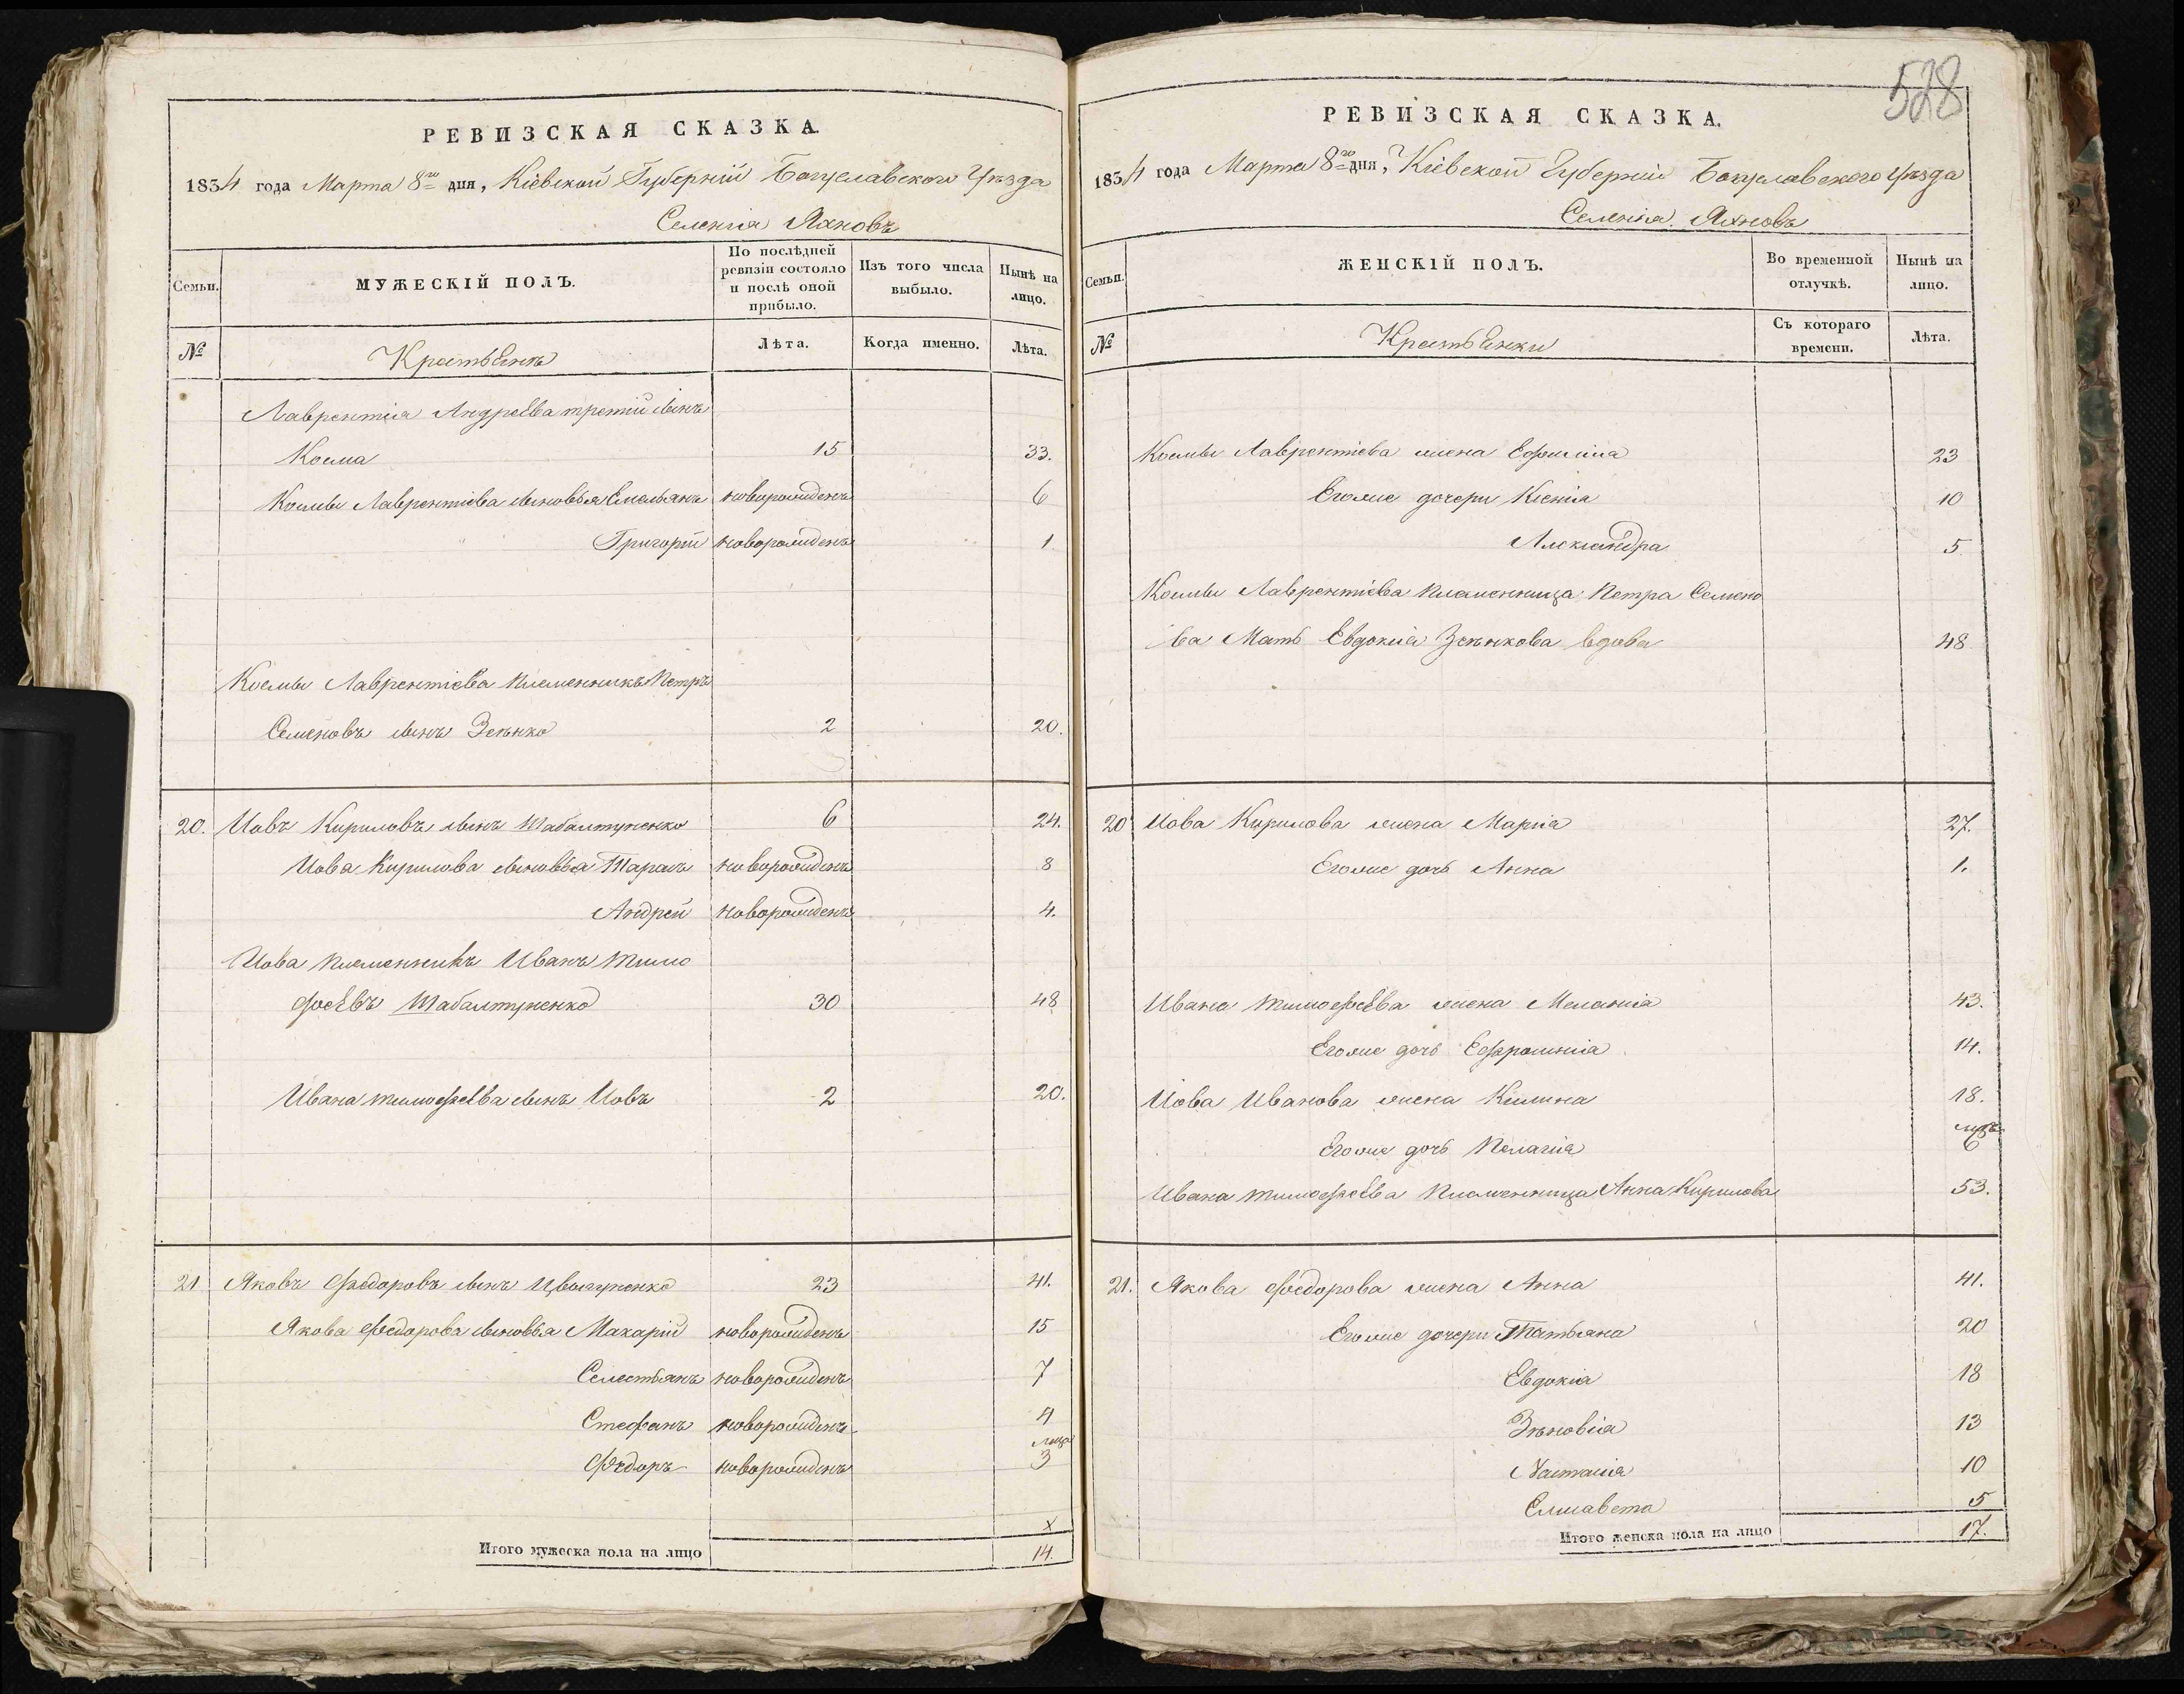 РЕВИЗСКАЯ СКАЗКА.
1834 года Марта 8го дня, Кіевской Губерніи Богуславскаго Уѣзда
Селенія Яхновъ
Семьи.
МУЖЕСКІЙ ПОЛЪ.
По послѣдней ревизіи состояло и послѣ оной прибыло.
Изъ того числа выбыло.
Нынѣ на лицо.
№
Крестьянъ
Лѣта.
Когда именно.
Лѣта.
Лаврентія Андреева третій сынъ
Косма 15 33.
Космы Лаврентіева сыновья Емельянъ новорожденъ 6
Григорій новорожденъ 1
Космы Лаврентіева племенникъ Петръ
Семеновъ сынъ Зенько 2 20.
20. Иовъ Кириловъ сынъ Шабалтуненко 6 24.
Иова Кирилова сыновья Тарасъ новорожденъ 8
Андрей новорожденъ 4.
Иова племенникъ Иванъ Тимо
феевъ Шабалтуненко 30 48
Ивана Тимофеева сынъ Иовъ 2 20.
21 Яковъ Федоровъ сынъ 23 41.
Якова Федорова сыновья Макарій новорожденъ 15
Селестьянъ новорожденъ 7
Стефанъ новорожденъ 4
Федоръ новорожденъ 3
х
Итого мужеска пола на лицо 14.
528
РЕВИЗСКАЯ СКАЗКА.
1834 года Марта 8го дня, Кіевской Губерніи Богуславскаго Уѣзда
Селенія Яхновъ
Семьи.
ЖЕНСКІЙ ПОЛЪ.
Во временной отлучкѣ.
Нынѣ на лицо.
№
Крестьянки
Съ котораго времени.
Лѣта.
Космы Лаврентіева жена Ефимія 23
Егоже дочери Ксенія 10
Александра 5
Космы Лаврентіева племенница Петра Семено
ва Мать Евдокія Зенькова вдова 48
20 Иова Кирилова жена Марія 27.
Егоже дочь Анна 1.
Ивана Тимофеева жена Меланія 43.
Егоже дочь Ефросинія 14.
Иова Иванова жена Килина 18.
Егоже дочь Пелагія 6
Ивана Тимофеева племенница Анна Кирилова 53.
21. Якова Федорова жена Анна 41.
Егоже дочери Татьяна 20
Евдокія 18
Зѣновія 13
Настасія 10
Елисавета 5
Итого женска пола на лицо 17.